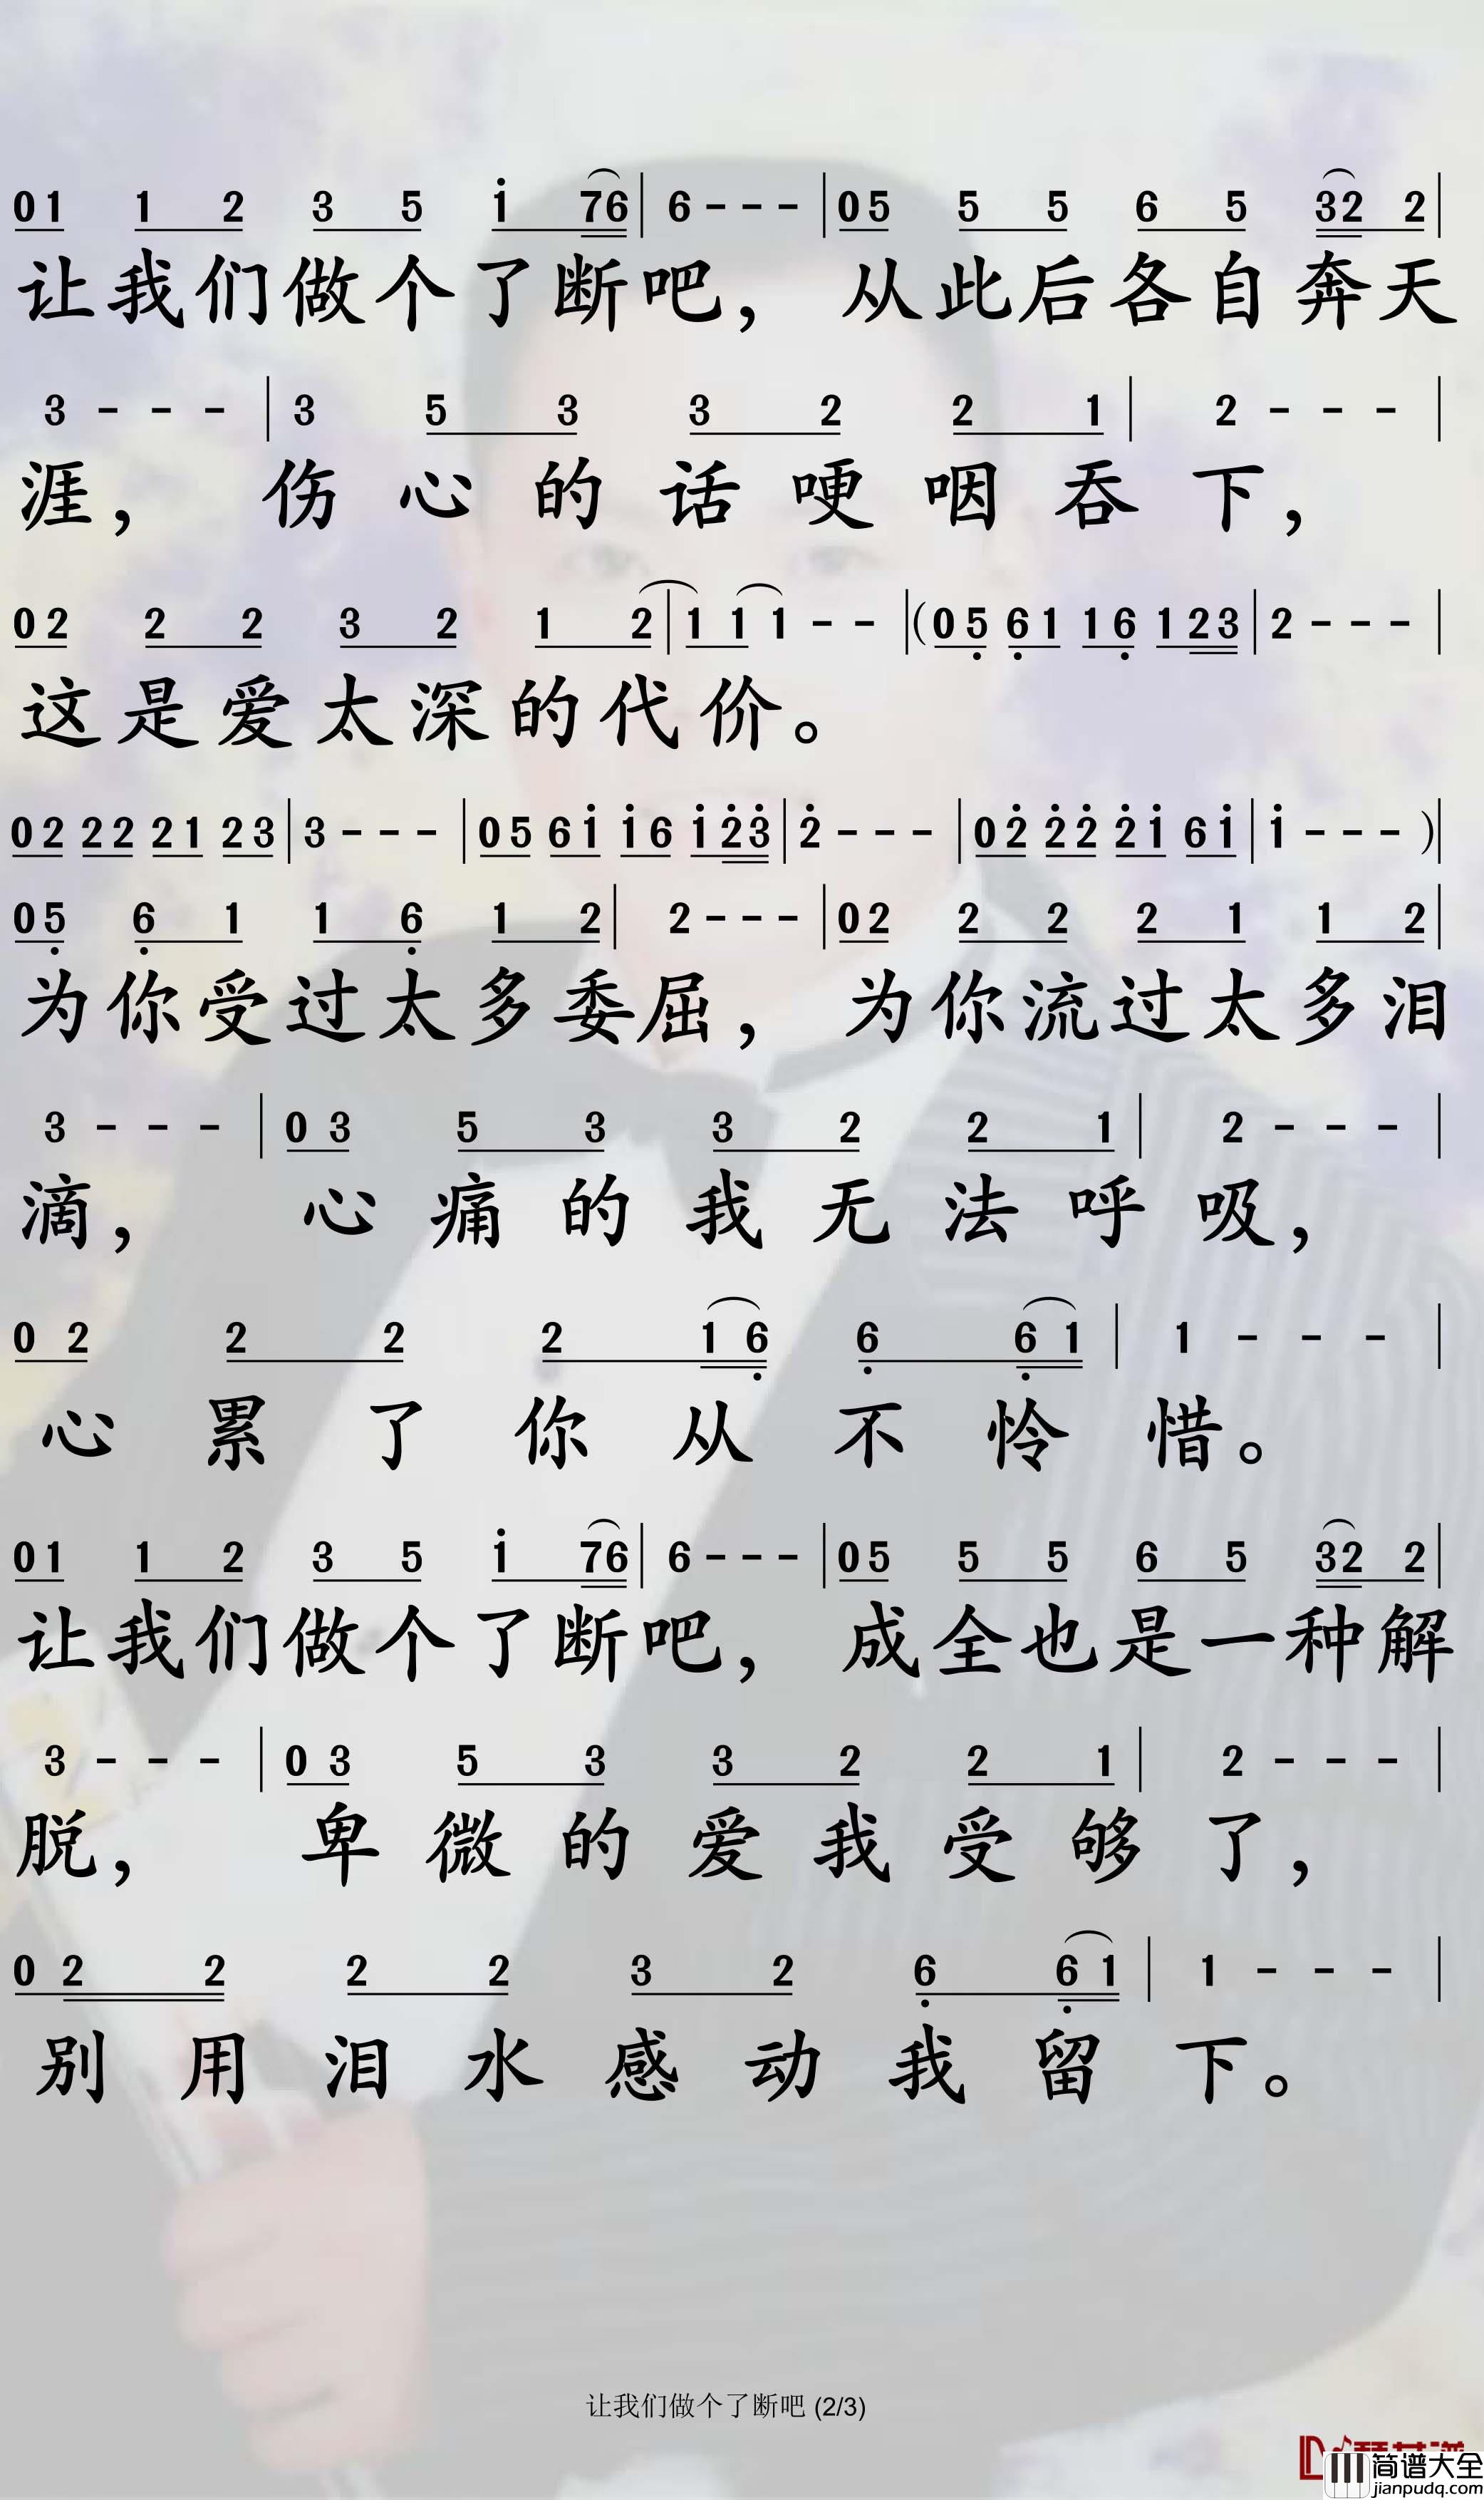 01 1 2 3 5 i 76 | 6 - - - | 05 5 5 6 5 32 2 |
让我们做个了断吧，从此后各自奔天
3 - - - | 3 5 3 3 2 2 1 | 2 - - - |
涯，伤心的话哽咽吞下，
02 2 2 3 2 1 2 | 1 1 1 - - | (05 61 16 123 | 2 - - - |
这是爱太深的代价。
02 22 21 23 | 3 - - - | 05 6i i6 i23 | 2 - - - | 02 22 2i 6i | i - - - )|
05 6 1 1 6 1 2 | 2 - - - | 02 2 2 2 1 1 2 |
为你受过太多委屈，为你流过太多泪
3 - - - | 03 5 3 3 2 2 1 | 2 - - - |
滴，心痛的我无法呼吸，
02 2 2 2 16 6 61 | 1 - - - |
心累了你从不怜惜。
01 1 2 3 5 i 76 | 6 - - - | 05 5 5 6 5 32 2 |
让我们做个了断吧，成全也是一种解
3 - - - | 03 5 3 3 2 2 1 | 2 - - - |
脱，卑微的爱我受够了，
02 2 2 2 3 2 6 61 | 1 - - - |
别用泪水感动我留下。
让我们做个了断吧 (2/3)
简谱大全
jianpudq.com